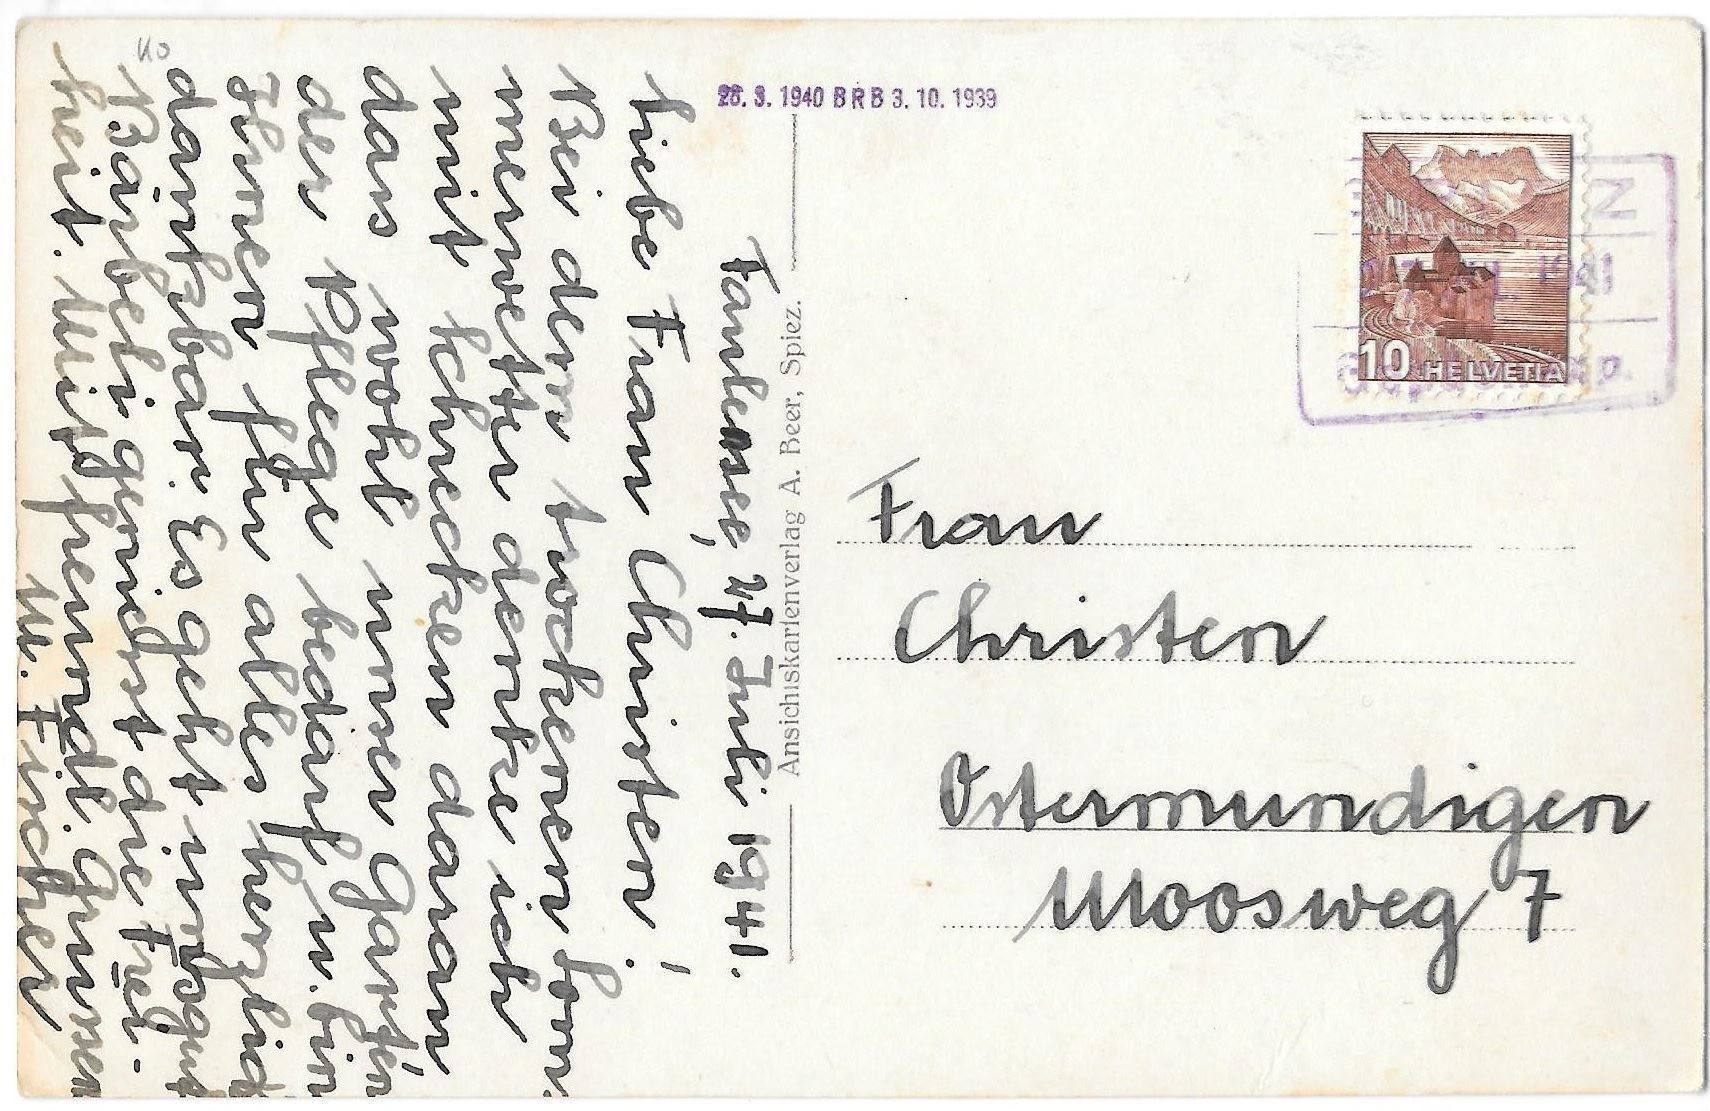 28. 3. 1940 B R B 3. 10. 1939
Faulensee, 27. Juli 1941.
Liebe Frau Christen!
Bei dem trockenen Som-
merwetter denke ich
mit Schrecken daran,
dass wohl unser Garten
der Pflege bedarf u. bin
Ihnen für alles herzlich
dankbar. Es geht uns gut
Bärbeli geniesst die Frei-
heit. Mit freundl. Grüssen
M. Fischer
Ansichtskartenverlag A. Beer, Spiez.
10 HELVETIA
1941
Frau
Christen
Ostermundigen
Moosweg 7